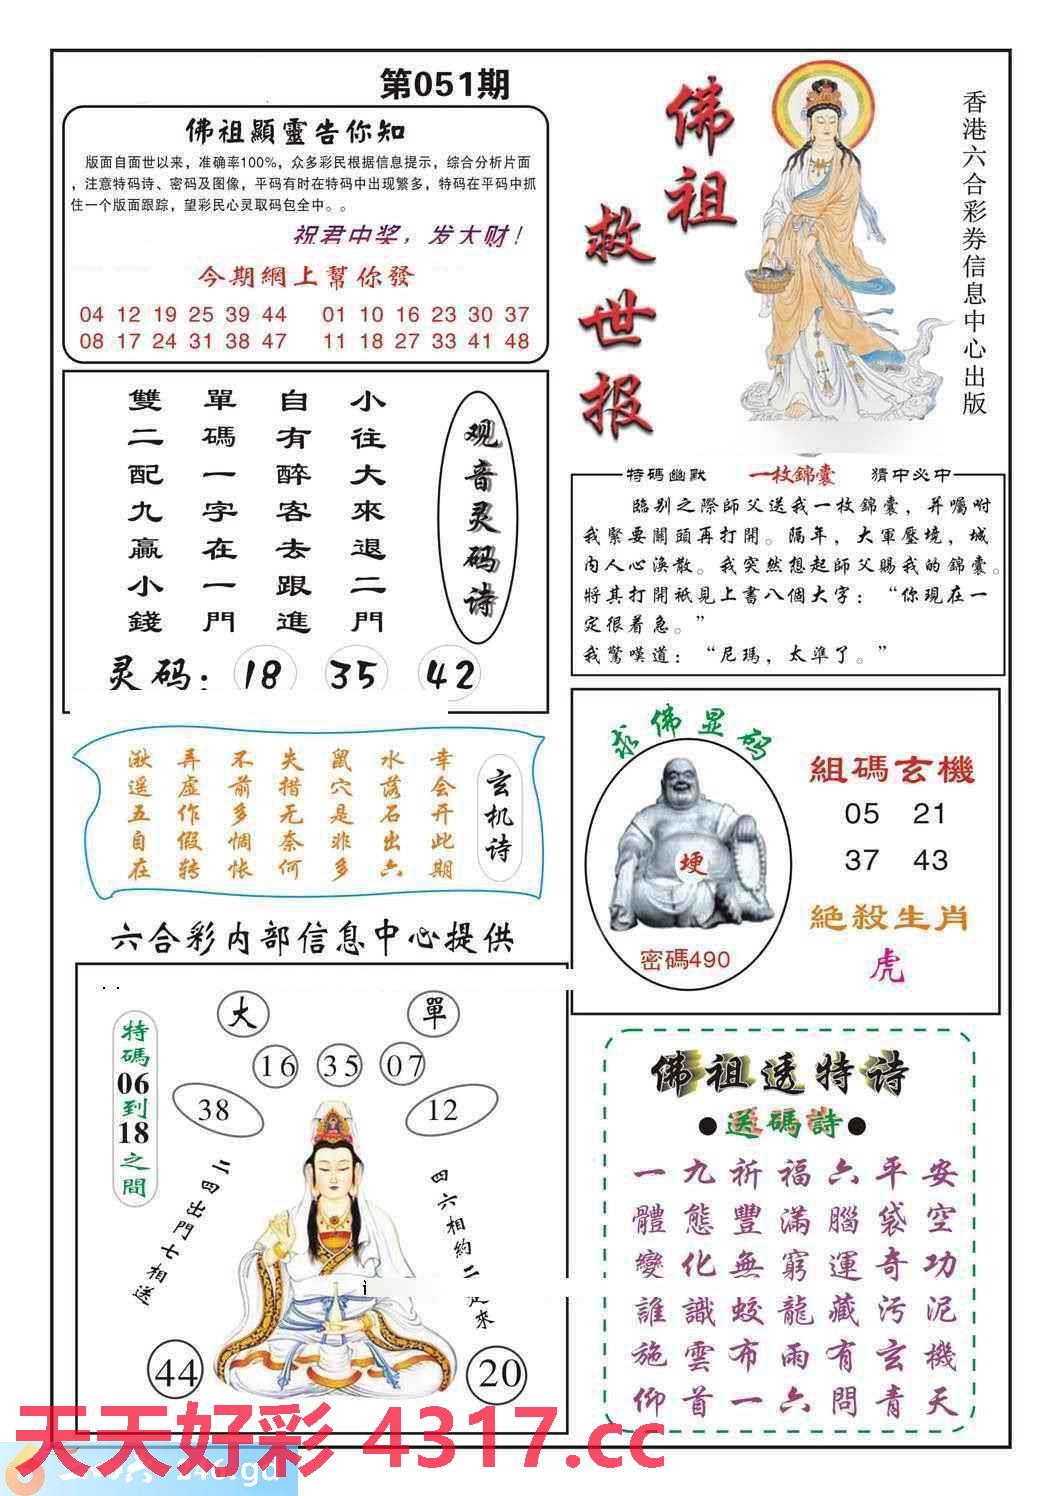 第051期
佛祖顯靈告你知
版面自面世以来，准确率100%，众多彩民根据信息提示，综合分析片面
，注意特码诗、密码及图像，平码有时在特码中出现繁多，特码在平码中抓
住一个版面跟踪，望彩民心灵取码包全中。。
祝君中奖，发大财！
今期網上幫你發
04 12 19 25 39 44 01 10 16 23 30 37
08 17 24 31 38 47 11 18 27 33 41 48
佛祖
救世报
香港六合彩券信息中心出版
小往大來退二門
自有醉客去跟進
單碼一字在一門
雙二配九贏小錢
观音灵码诗
灵码：18 35 42
特碼幽默 一枚錦囊 猜中必中
臨别之際師父送我一枚錦囊，并囑咐
我緊要關頭再打開。隔年，大軍壓境，城
内人心渙散。我突然想起師父賜我的錦囊。
將其打開祇見上書八個大字：“你現在一
定很着急。”
我驚嘆道：“尼瑪，太準了。”
玄机诗
幸会开此期
水落石出六
鼠穴是非多
失措无奈何
不前多惆怅
弄虚作假转
湫遥五自在
求佛显码
埂
密碼490
組碼玄機
05 21
37 43
絕殺生肖
虎
六合彩内部信息中心提供
特碼06到18之間
大 單
16 35 07
38 12
二四出門七相送
四六相約二
來
44 20
佛祖透特诗
●送碼詩●
一九祈福六平安
體態豐滿腦袋空
變化無窮運奇功
誰識蛟龍藏污泥
施雲布雨有玄機
仰首一六問青天
天天好彩 4317.cc
246.gd